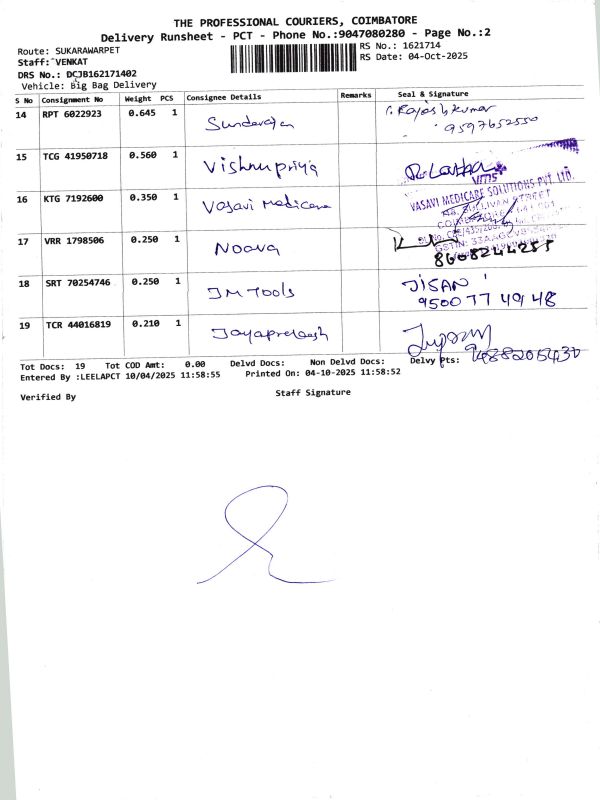 THE PROFESSIONAL COURIERS, COIMBATORE
Delivery Runsheet - PCT - Phone No.:9047080280 - Page No.:2
Route: SUKARAWARPET
RS No.: 1621714
Staff: VENKAT
RS Date: 04-Oct-2025
DRS No.: DCJB162171402
Vehicle: Big Bag Delivery
S No Consignment No Weight PCS Consignee Details Remarks Seal & Signature
14 RPT 6022923 0.645 1 Sundarajan Rajesh kumar
9597652550
15 TCG 41950718 0.560 1 Vishnupriya R. Latha
16 KTG 7192600 0.350 1 Vasavi Medicare VMS
VASAVI MEDICARE SOLUTIONS PVT LTD.
SULLIVAN STREET
17 VRR 1798506 0.250 1 Noova
8608244255
18 SRT 70254746 0.250 1 JM Tools JISAN
9500 77 49 48
19 TCR 44016819 0.210 1 Jayaprakash
Tot Docs: 19 Tot COD Amt: 0.00 Delvd Docs: Non Delvd Docs: Delvy Pts:
Entered By :LEELAPCT 10/04/2025 11:58:55 Printed On: 04-10-2025 11:58:52
Verified By Staff Signature